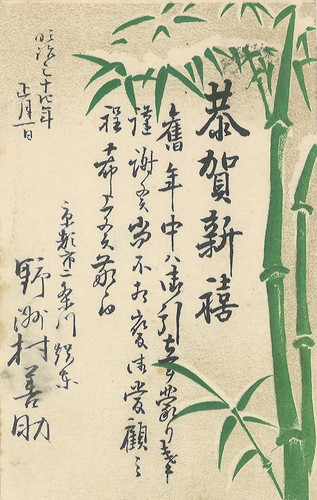 恭賀新禧
舊年中ハ御引立ヲ蒙り奉
謹謝候尚不相変御愛顧之
程希上候敬白
京都市二条川端東
野洲村善助
明治三十九年
正月一日